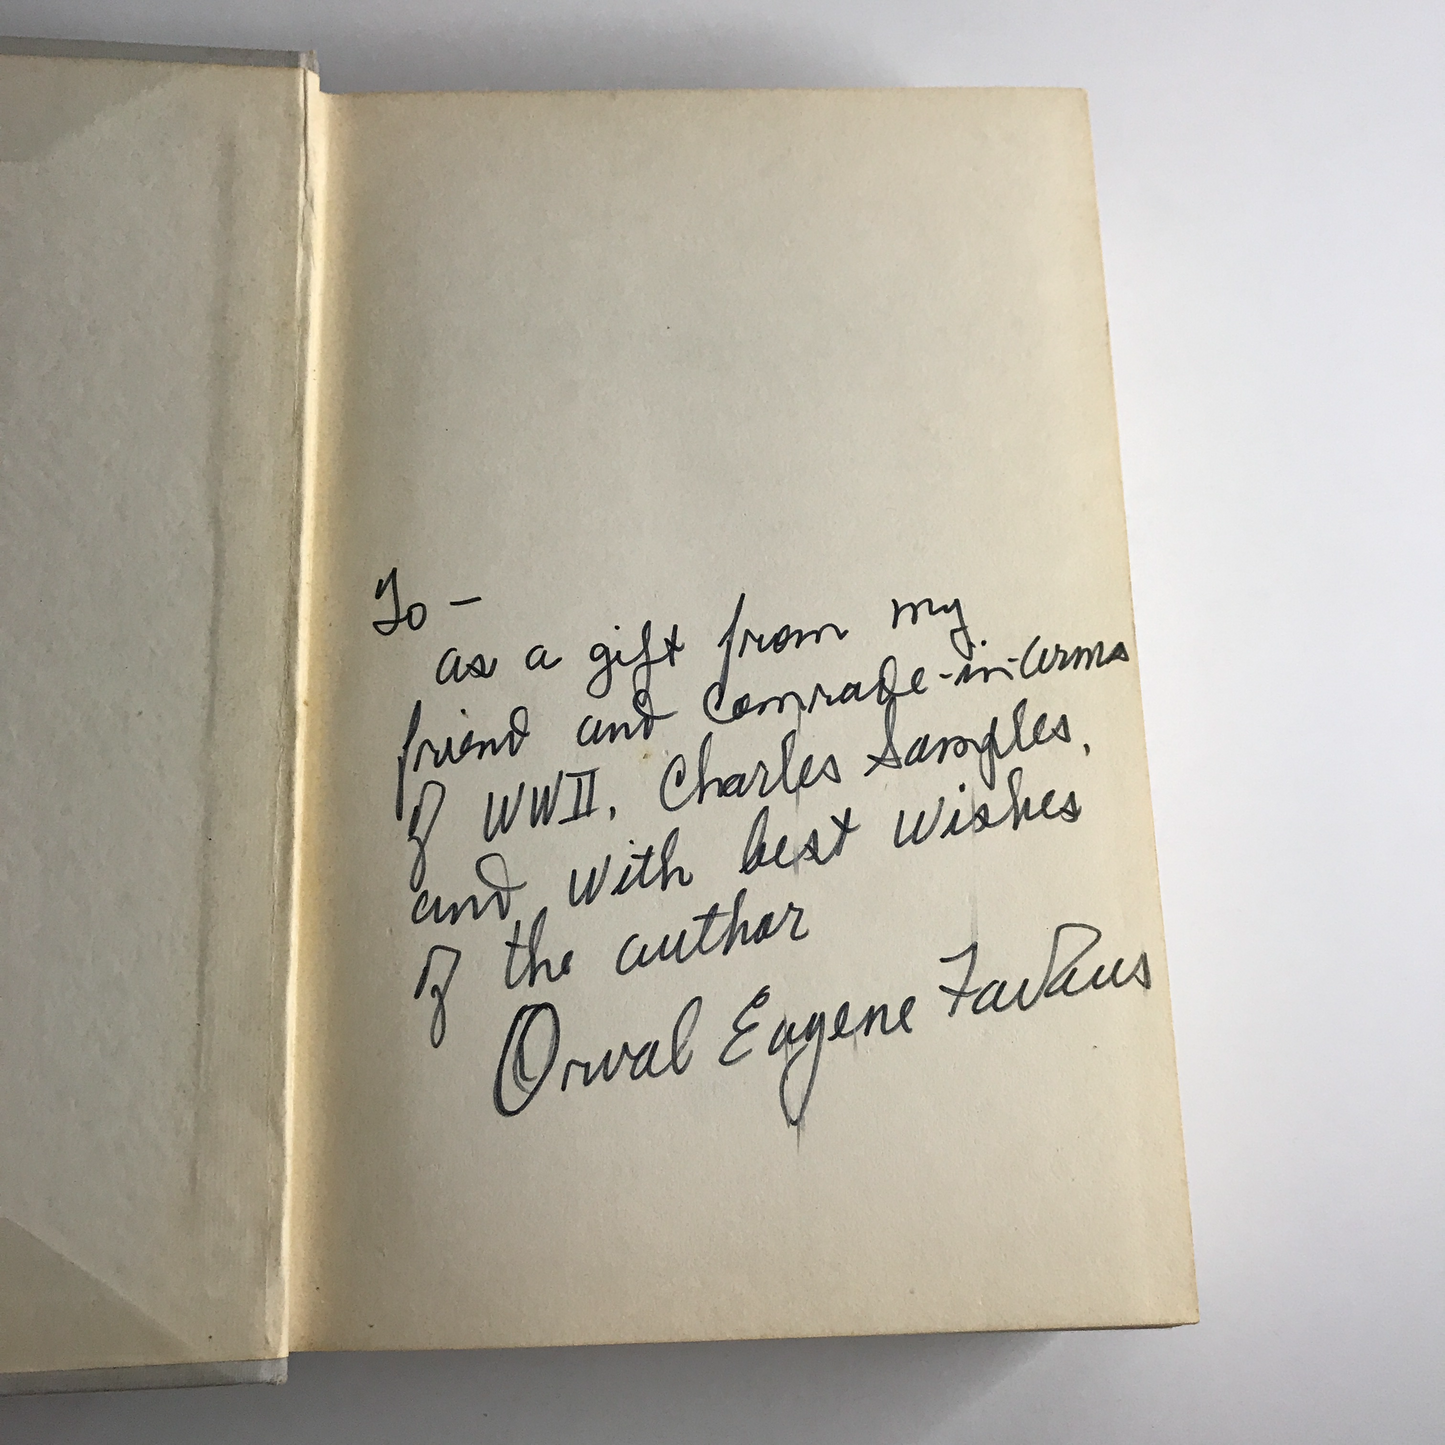 To –
as a gift from my
friend and comrade-in-arms
of WWII, Charles Samples,
and with best wishes
of the author
Orval Eugene Faubus